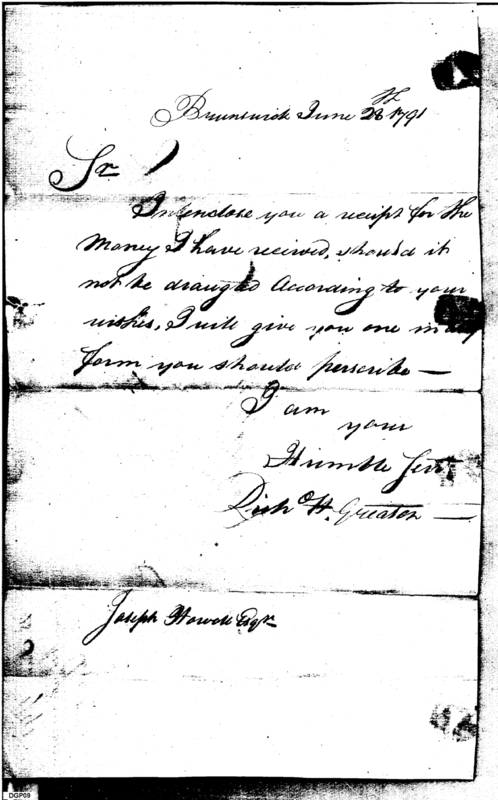 Brunswick June 28th 1791
Sr
I enclose you a receipt for the
Money I have received, should it
not be draughd According to your
wishes, I will give you one in any
form you should perscribe —
I am
your
Humble Servt
Richd H. Greaton —
Joseph Howell Esqr
DGP09